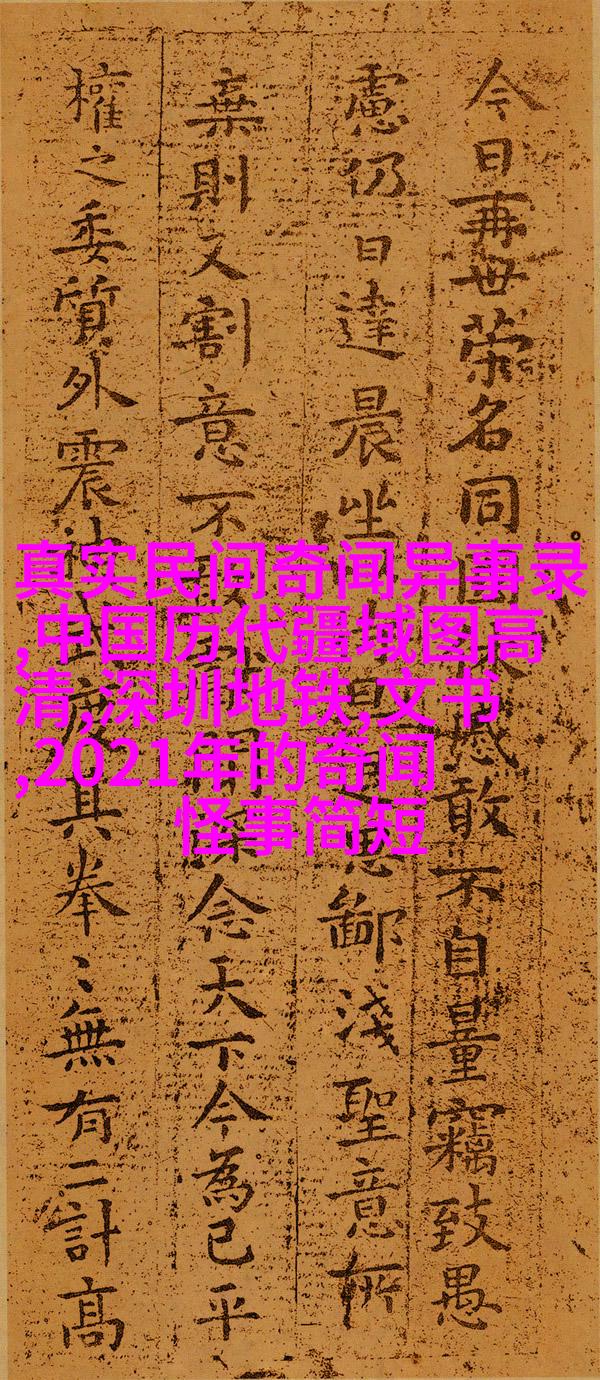 今日再世荣名同慼敢不自量竊致愚
慮仍日達晨坐思鄙淺聖意所
棄則又割意不深念天下今為已平
權之委質外震神度其拳〻無有二計高
真实民间奇闻异事录
,中国历代疆域图高
清,深圳地铁,文书
,2021年的奇闻
怪事简短